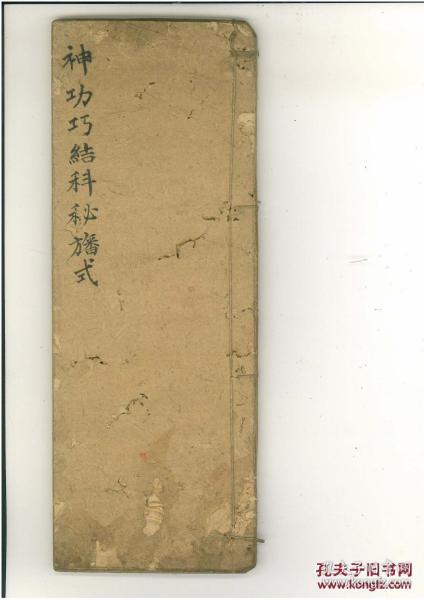 神功巧結科秘旛式
孔夫子旧书网
www.kongfz.com